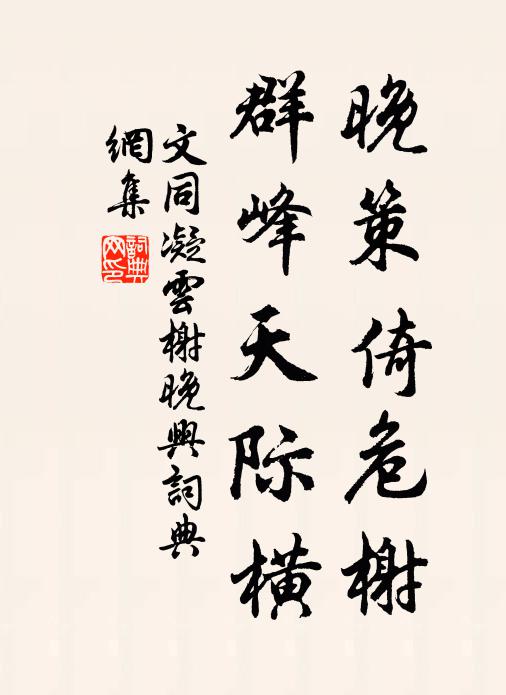 晚策倚危榭
群峰天际横
文同凝雲榭晚興詞典
網集
詞典
网印